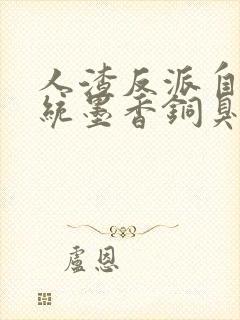 人渣反派自
統墨香銅臭
盧恩